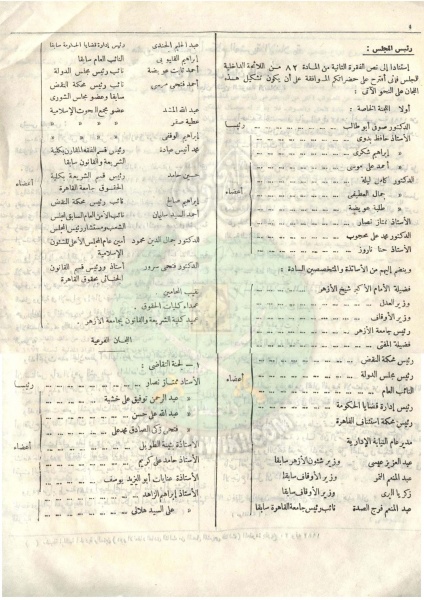 رئيس المجلس :
استنادا إلى نص الفقرة الثانية من المادة ٨٢ من اللائحة الداخلية
للمجلس فإنى أقترح على حضراتكم الموافقة على أن يكون تشكيل هذه
اللجان على النحو الآتى :
أولا اللجنة الخاصة :
الدكتور صوفى أبو طالب ... رئيسا
الأستاذ حافظ بدوى
« إبراهيم شكرى
« أحمد على موسى
الدكتور كامل ليلة
« جمال العطيفى
« طلبة عويضة
الأستاذ ممتاز نصار
الدكتور محمد على محجوب
الأستاذ حنا ناروز
أعضاء
وينضم إليهم من الأساتذة والمتخصصين السادة :
فضيلة الإمام الأكبر شيخ الأزهر
وزير العدل
وزير الأوقاف
رئيس جامعة الأزهر
فضيلة المفتى
رئيس محكمة النقض
رئيس مجلس الدولة
النائب العام
رئيس إدارة قضايا الحكومة
رئيس محكمة استئناف القاهرة
مدير عام النيابة الإدارية
أعضاء
عبد العزيز عيسى وزير شئون الأزهر سابقا
عبد المنعم النمر وزير الأوقاف سابقا
زكريا البرى وزير الأوقاف سابقا
عبد المنعم فرج الصدة نائب رئيس جامعة القاهرة سابقا
عبد الحليم الجندى رئيس إدارة قضايا الحكومة سابقا
إبراهيم القليوبى النائب العام سابقا
أحمد ثابت عويضة نائب رئيس مجلس الدولة
أحمد فتحى مرسى نائب رئيس محكمة النقض
سابقا وعضو مجلس الشورى
عبد الله المشد عضو مجمع البحوث الإسلامية
عطية صقر « « «
إبراهيم الوقفى « « «
محمد أنيس عبادة رئيس قسم الفقه المقارن بكلية
الشريعة والقانون سابقا
حسين حامد رئيس قسم الشريعة بكلية
الحقوق جامعة القاهرة
أعضاء
إبراهيم صالح نائب رئيس محكمة النقض
الدكتور جمال الدين محمود أمين عام المجلس الأعلى للشئون
الإسلامية
الدكتور فتحى سرور أستاذ ورئيس قسم القانون
الجنائى بحقوق القاهرة
نقيب المحامين
عمداء كليات الحقوق .
عميد كلية الشريعة والقانون بجامعة الأزهر .
اللجان الفرعية
١ – لجنة التقاضى :
الأستاذ ممتاز نصار ... رئيسا
« عبد الرحمن توفيق على خشبة
« عبد الله على حسن
« فتحى زكى الصادق محمد على
الأستاذة بثينة الطويل
الأستاذ حامد على كريم
الأستاذة عنايات أبو اليزيد يوسف
الأستاذ إبراهيم الزاهد
« على السيد هلالى
أعضاء